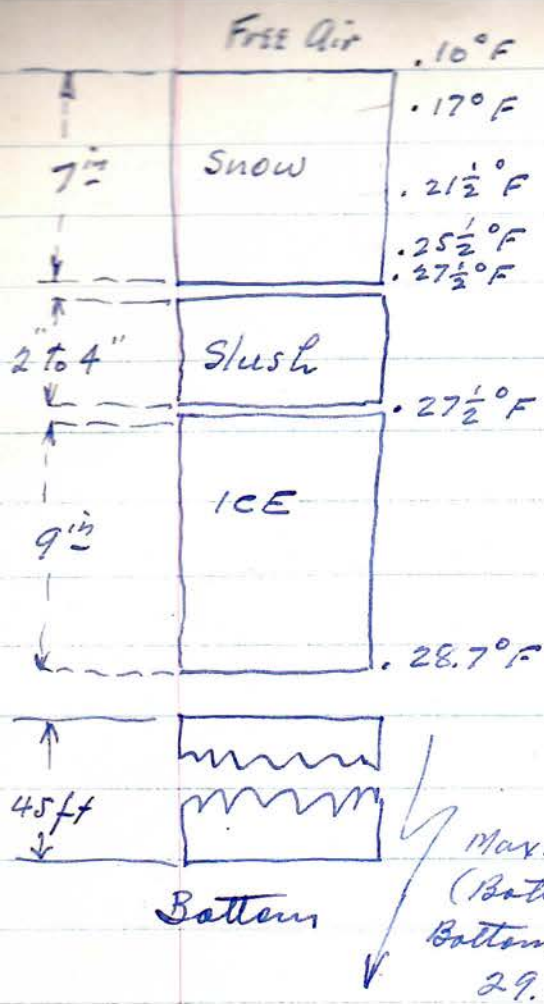 Free Air
.10°F
.17°F
7in Snow
.21½°F
.25½°F
.27½°F
2" to 4" Slush
.27½°F
ICE
9in
.28.7°F
45ft
Max.
Bottom
Bottom
29.